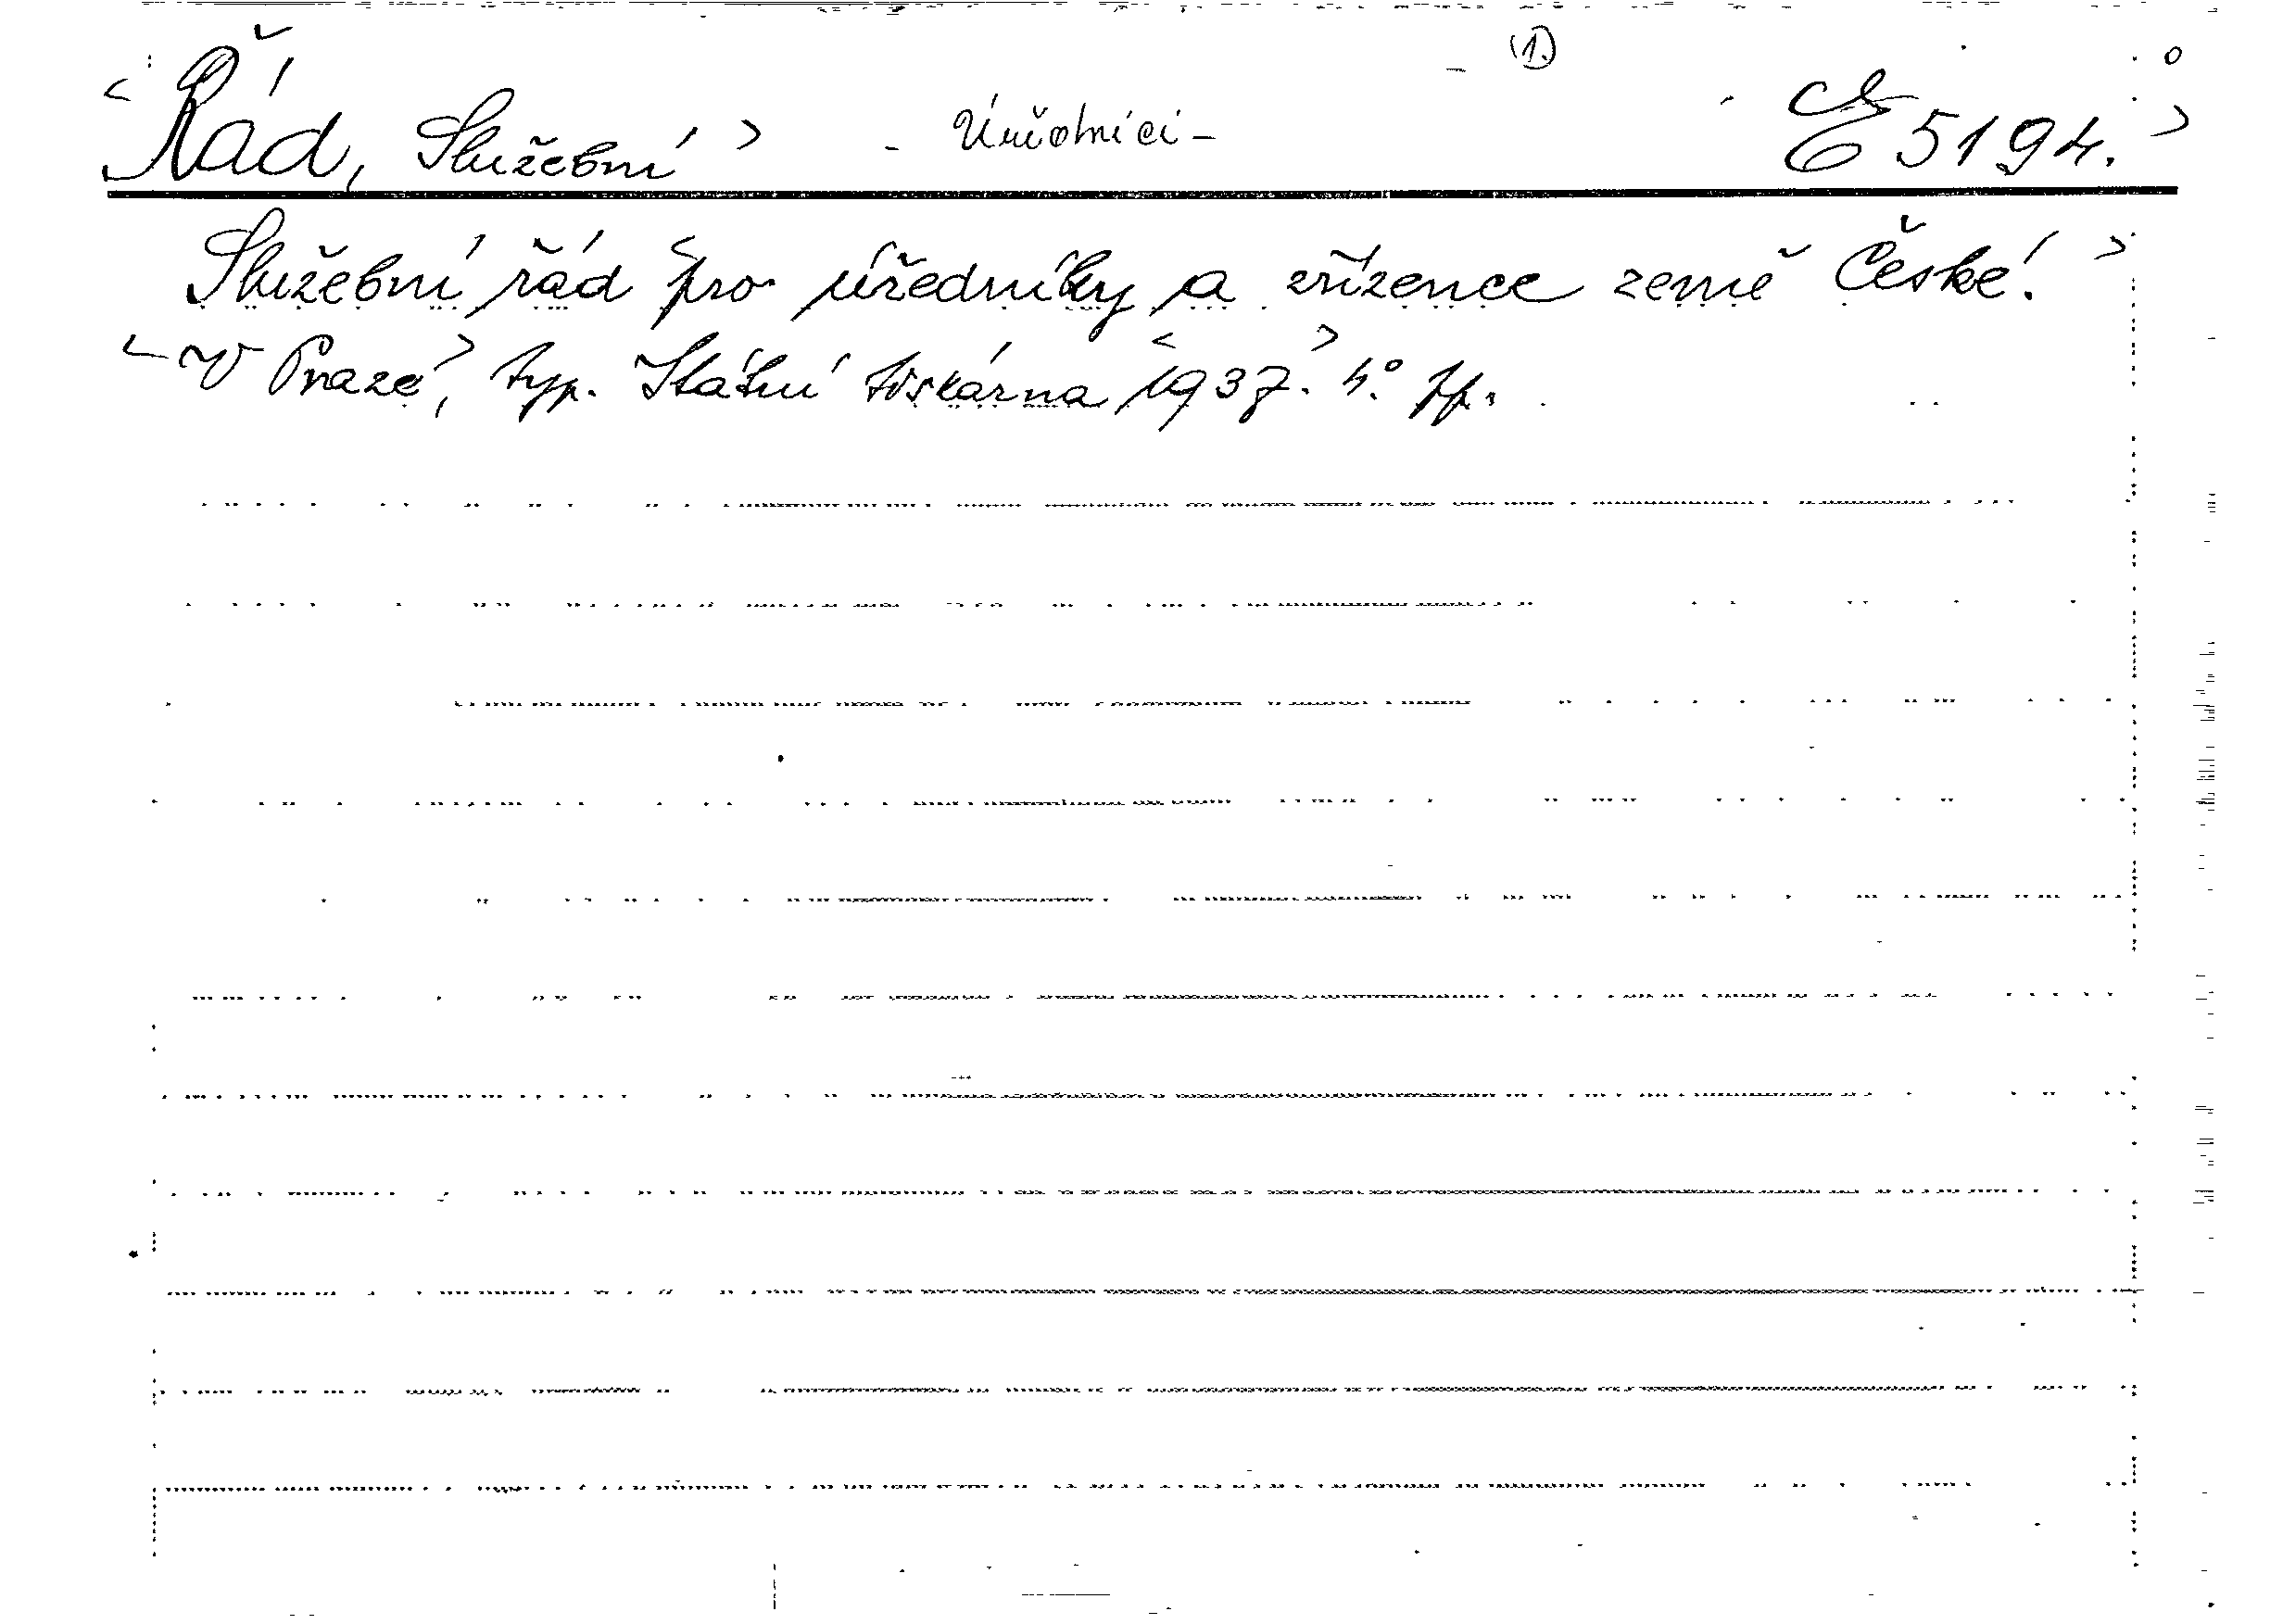 (1.)
<Řád, Služební> - Úředníci - E 5194.>
Služební řád <pro úředníky a zřízence země České.>
<V Praze,> typ. Státní tiskárna <1937.> 4°.